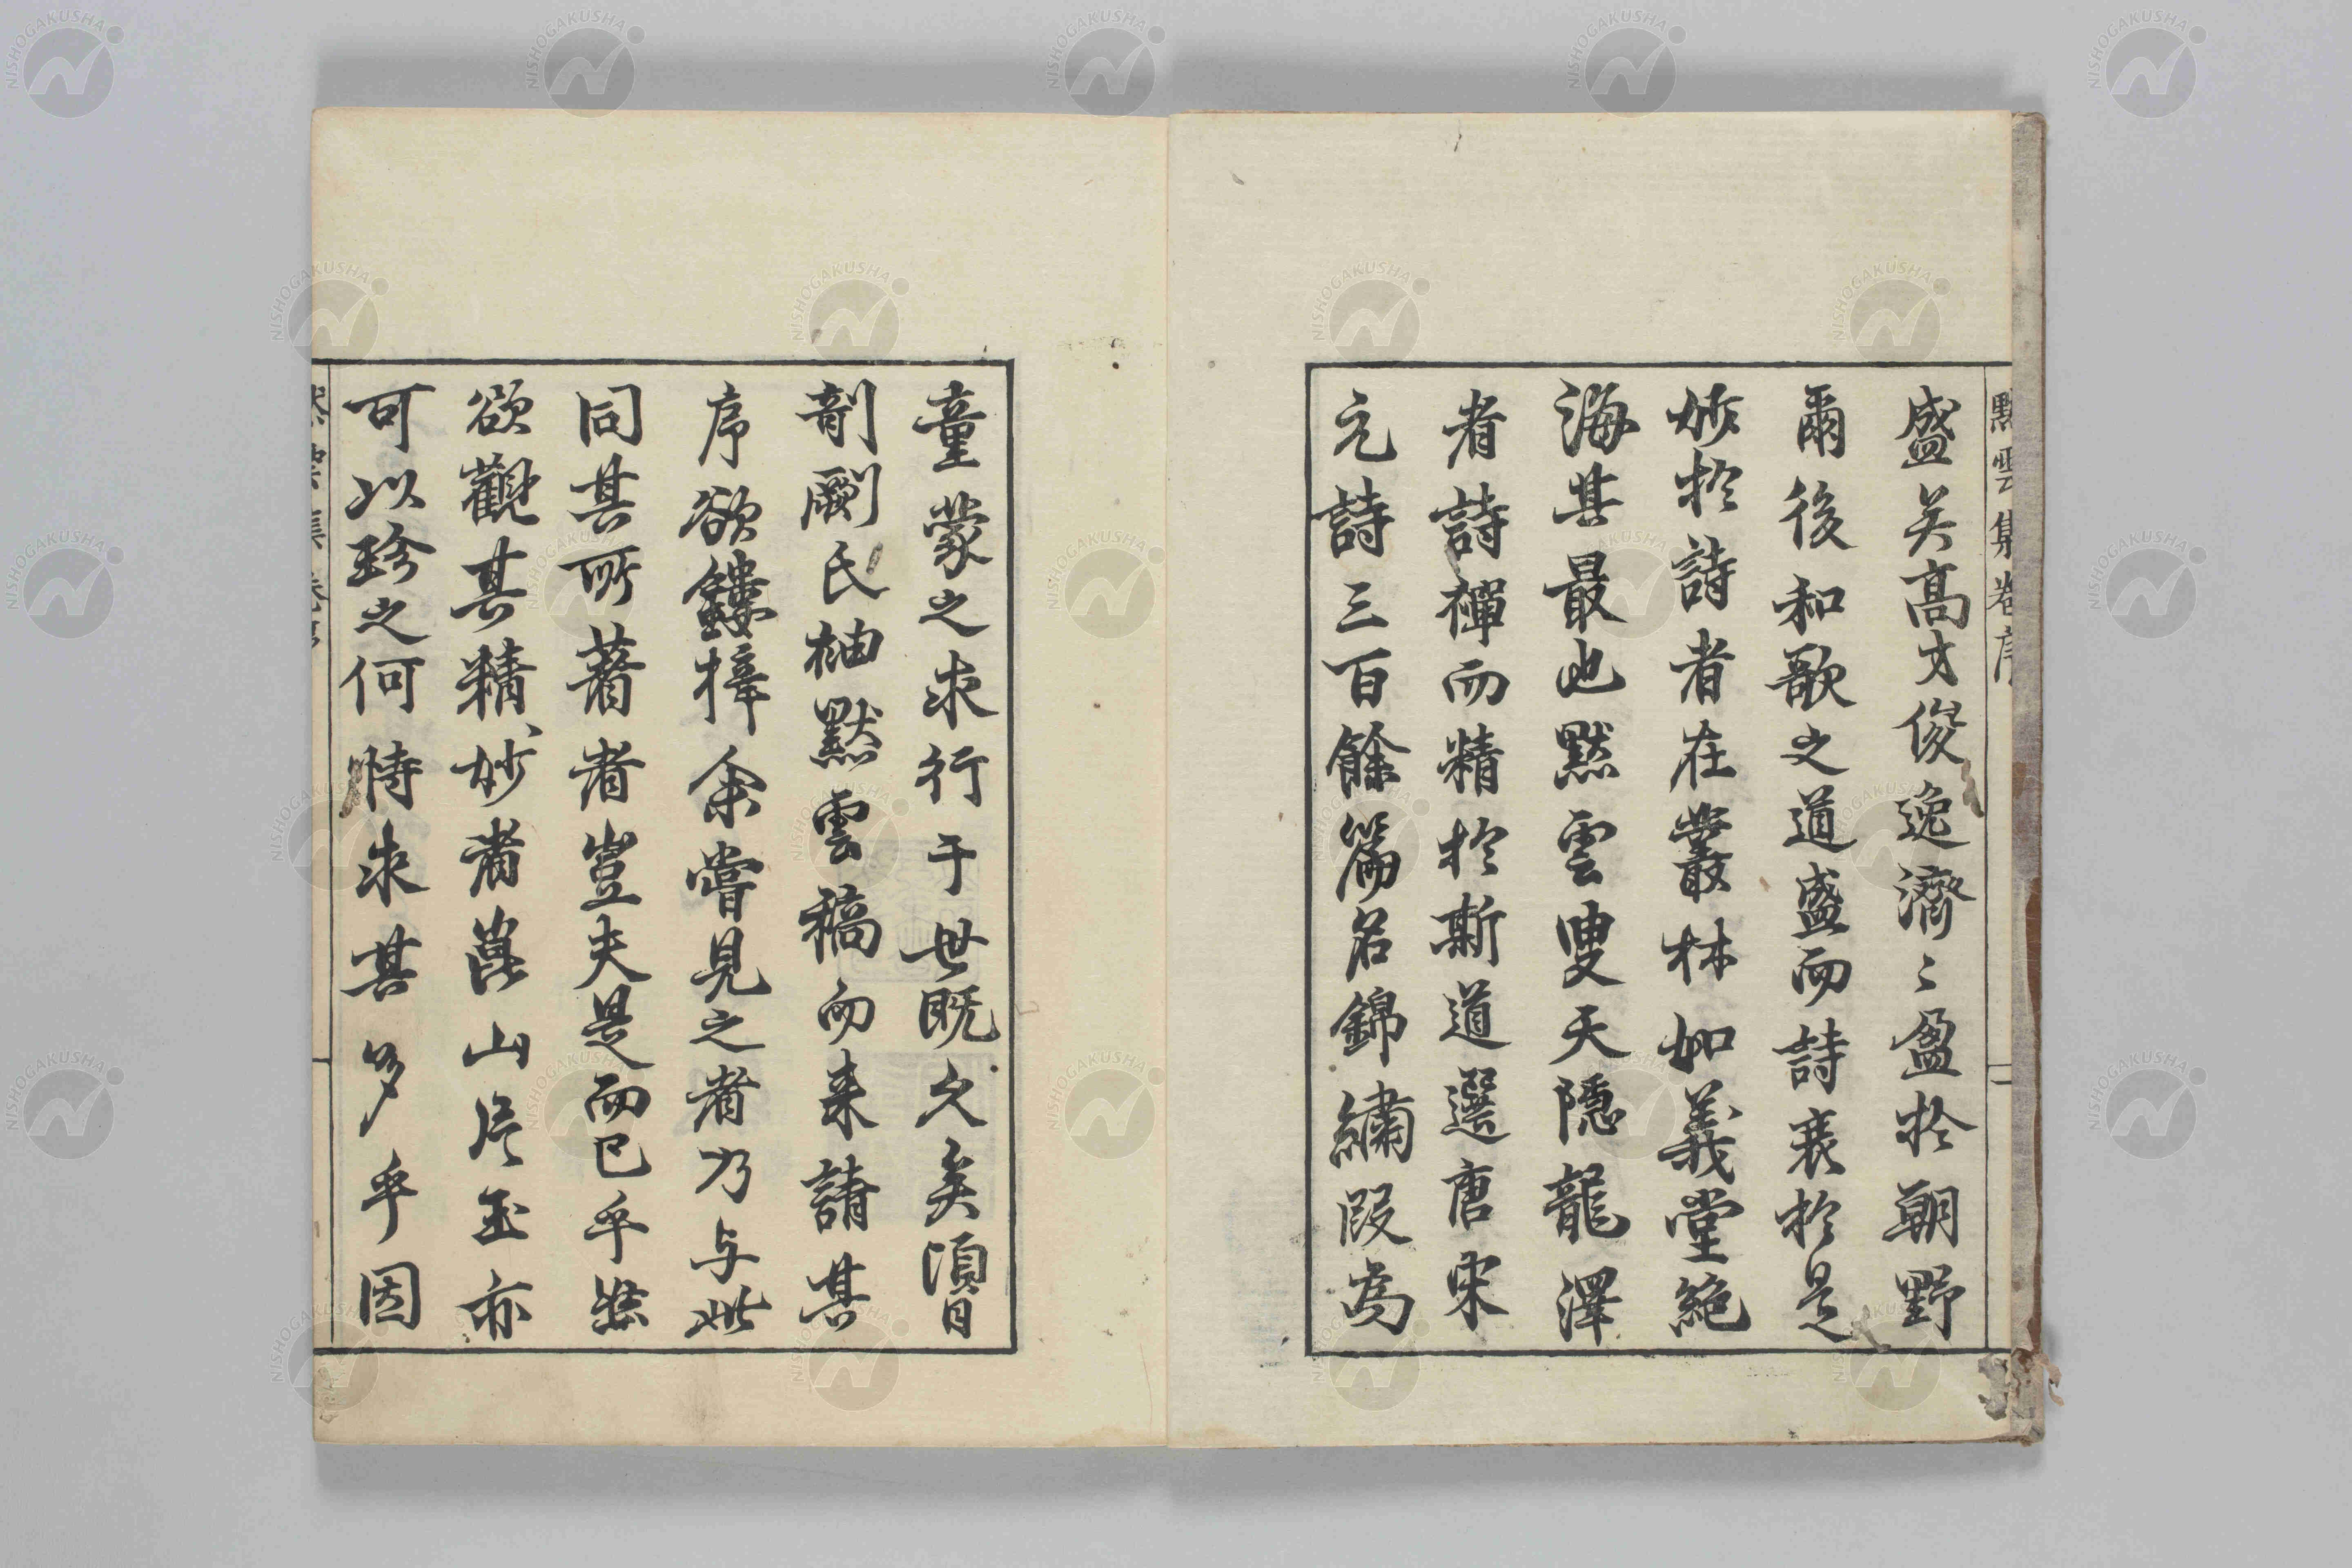 默雲集卷序
盛矣高才俊逸濟〻盈於朝野
爾後和歌之道盛而詩衰於是
妙於詩者在叢林如義堂絶
海其最也默雲叟天隱龍澤
者詩禪而精於斯道選唐宋
元詩三百餘篇名錦繡段為
童蒙之求行于世既久矣頃
剞劂氏抽默雲稿而来請其
序欲鏤梓余嘗見之者乃与此
同其所著者豈夫是而已乎然
欲觀其精妙者崑山片玉亦
可以珍之何恃求其多乎因
NISHOGAKUSHA